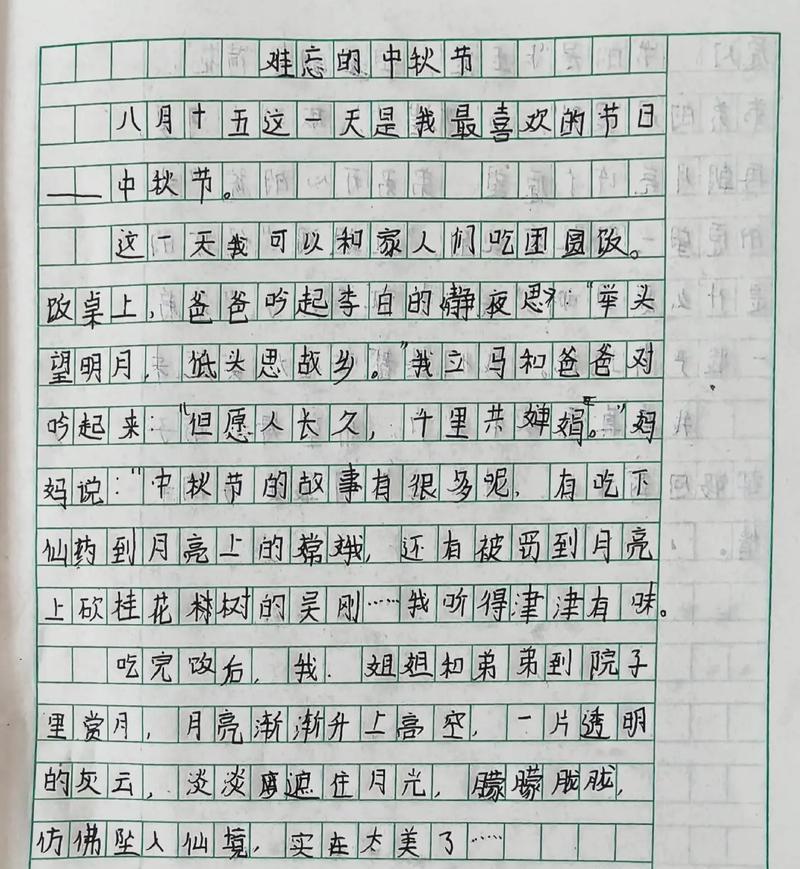 难忘的中秋节
八月十五这一天是我最喜欢的节日
——中秋节。
这一天我可以和家人们吃团圆饭。
饭桌上，爸爸吟起李白的静夜思：“举头
望明月，低头思故乡。”我立马和爸爸对
吟起来：“但愿人长久，千里共婵娟。”妈
妈说：“中秋节的故事有很多呢，有吃下
仙药到月亮上的嫦娥，还有被罚到月亮
上砍桂花树的吴刚……我听得津津有味。
吃完饭后，我、姐姐和弟弟到院子
里赏月，月亮渐渐升上高空，一片透明
的灰云，淡淡遮住月光，朦朦胧胧，
仿佛坠入仙境，实在太美了……